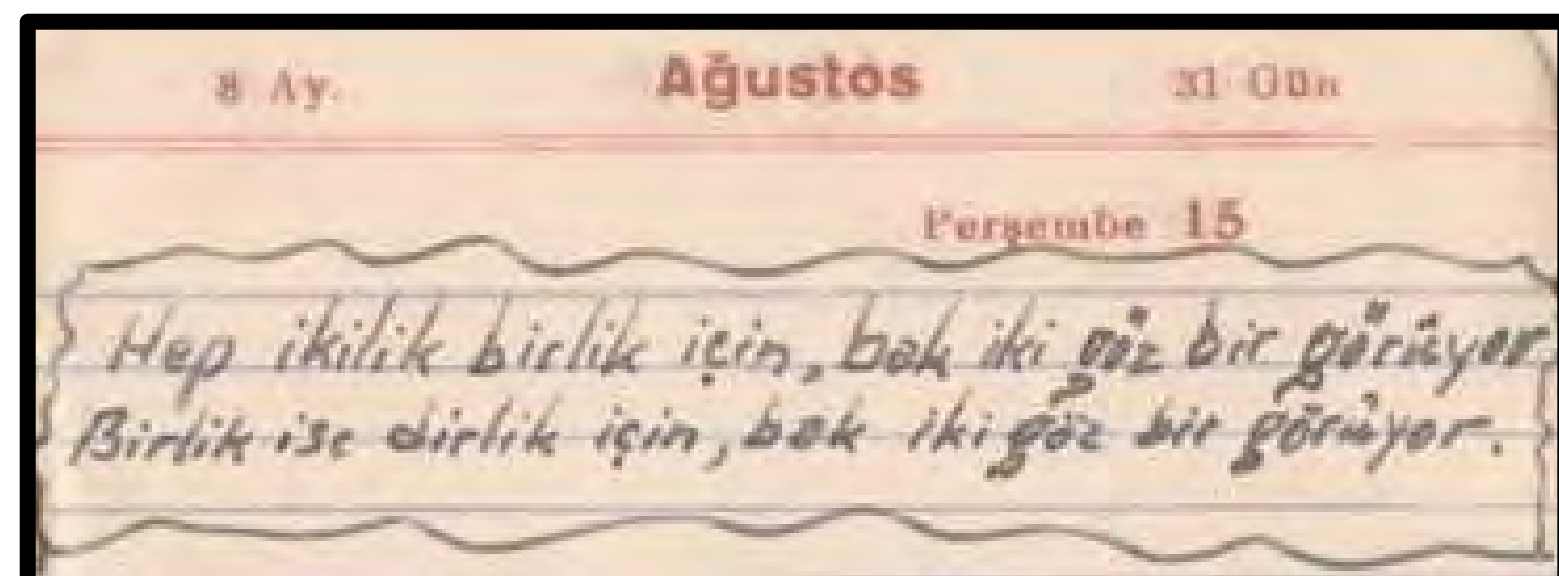 8 Ay. Ağustos 31 Gün
Perşembe 15
Hep ikilik birlik için, bak iki göz bir görüyor.
Birlik ise dirlik için, bak iki göz bir görüyor.